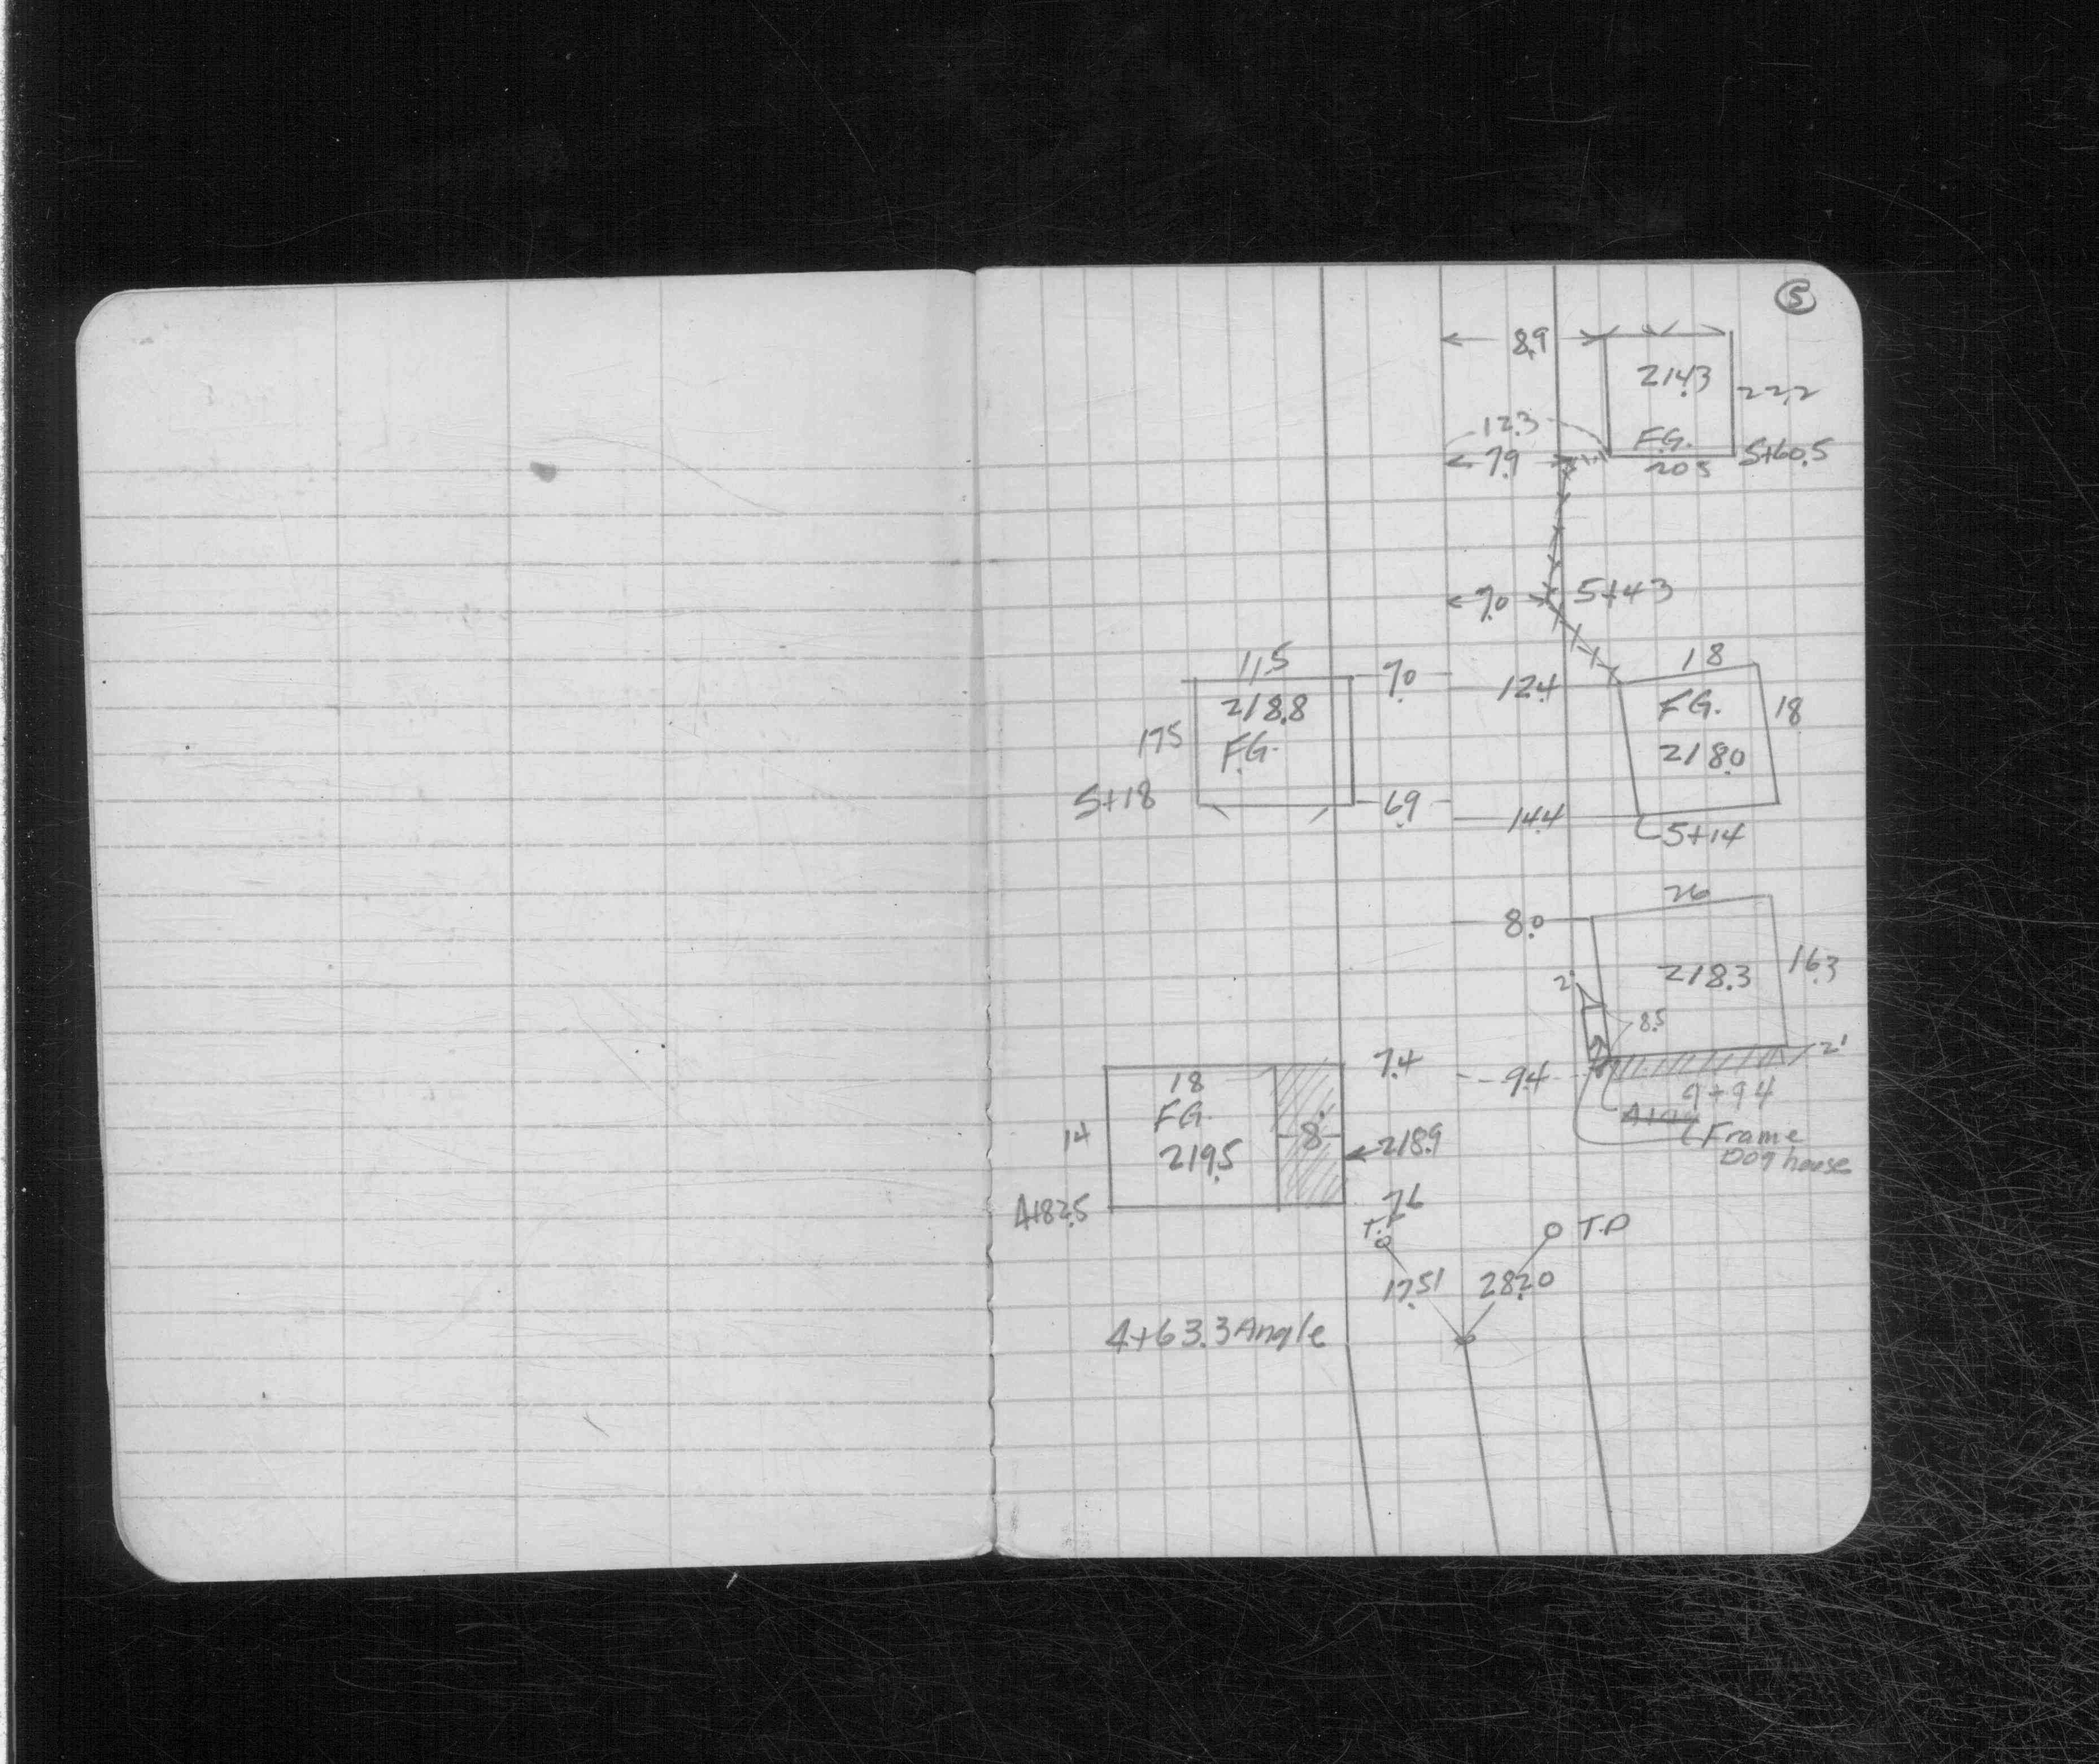 5
8.9
214.3
22.2
12.3
F.G.
7.9
20.5
5+60.5
7.0
5+43
11.5
18
7.0
12.4
218.8
F.G.
18
17.5
F.G.
218.0
5+18
6.9
14.4
5+14
26
8.0
218.3
16.3
2'
8.5
7.4
9.4
2'
18
9+94
F.G.
8
14
Frame
219.5
218.9
Dog house
4+82.5
7.6
T.P
T.P
17.51
28.20
4+63.3 Angle